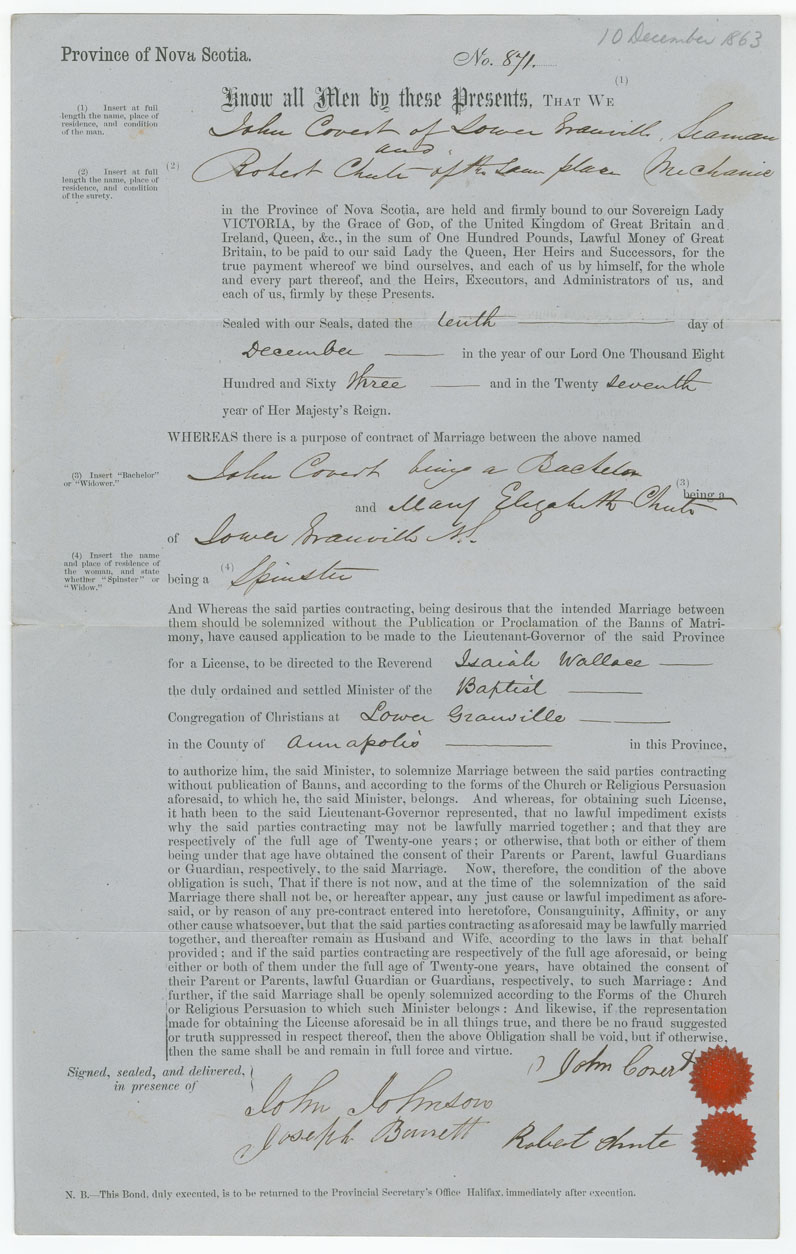 10 December 1863
Province of Nova Scotia.
No. 871.
(1)
Know all Men by these Presents, THAT WE
(1) Insert at full
length the name, place of
residence, and condition
of the man.
John Covert of Lower Granville, Seaman
and
(2)
Robert Chute of the same place Mechanic
(2) Insert at full
length the name, place of
residence, and condition
of the surety.
in the Province of Nova Scotia, are held and firmly bound to our Sovereign Lady
VICTORIA, by the Grace of GOD, of the United Kingdom of Great Britain and
Ireland, Queen, &c., in the sum of One Hundred Pounds, Lawful Money of Great
Britain, to be paid to our said Lady the Queen, Her Heirs and Successors, for the
true payment whereof we bind ourselves, and each of us by himself, for the whole
and every part thereof, and the Heirs, Executors, and Administrators of us, and
each of us, firmly by these Presents.
Sealed with our Seals, dated the tenth day of
December in the year of our Lord One Thousand Eight
Hundred and Sixty three and in the Twenty seventh
year of Her Majesty's Reign.
WHEREAS there is a purpose of contract of Marriage between the above named
(3) Insert "Bachelor"
or "Widower."
John Covert being a Bachelor
(3)
being a
and Mary Elizabeth Chute
of Lower Granville N.S.
(4) Insert the name
and place of residence of
the woman, and state
whether "Spinster" or
"Widow."
being a (4) Spinster
And Whereas the said parties contracting, being desirous that the intended Marriage between
them should be solemnized without the Publication or Proclamation of the Banns of Matri-
mony, have caused application to be made to the Lieutenant-Governor of the said Province
for a License, to be directed to the Reverend Isaiah Wallace
the duly ordained and settled Minister of the Baptist
Congregation of Christians at Lower Granville
in the County of Annapolis in this Province,
to authorize him, the said Minister, to solemnize Marriage between the said parties contracting
without publication of Banns, and according to the forms of the Church or Religious Persuasion
aforesaid, to which he, the said Minister, belongs. And whereas, for obtaining such License,
it hath been to the said Lieutenant-Governor represented, that no lawful impediment exists
why the said parties contracting may not be lawfully married together; and that they are
respectively of the full age of Twenty-one years; or otherwise, that both or either of them
being under that age have obtained the consent of their Parents or Parent, lawful Guardians
or Guardian, respectively, to the said Marriage. Now, therefore, the condition of the above
obligation is such, That if there is not now, and at the time of the solemnization of the said
Marriage there shall not be, or hereafter appear, any just cause or lawful impediment as afore-
said, or by reason of any pre-contract entered into heretofore, Consanguinity, Affinity, or any
other cause whatsoever, but that the said parties contracting as aforesaid may be lawfully married
together, and thereafter remain as Husband and Wife, according to the laws in that behalf
provided; and if the said parties contracting are respectively of the full age aforesaid, or being
either or both of them under the full age of Twenty-one years, have obtained the consent of
their Parent or Parents, lawful Guardian or Guardians, respectively, to such Marriage: And
further, if the said Marriage shall be openly solemnized according to the Forms of the Church
or Religious Persuasion to which such Minister belongs: And likewise, if the representation
made for obtaining the License aforesaid be in all things true, and there be no fraud suggested
or truth suppressed in respect thereof, then the above Obligation shall be void, but if otherwise,
then the same shall be and remain in full force and virtue.
Signed, sealed, and delivered,
in presence of
John Covert
John Johnson
Joseph Barrett
Robert Chute
N. B.—This Bond, duly executed, is to be returned to the Provincial Secretary's Office Halifax, immediately after execution.